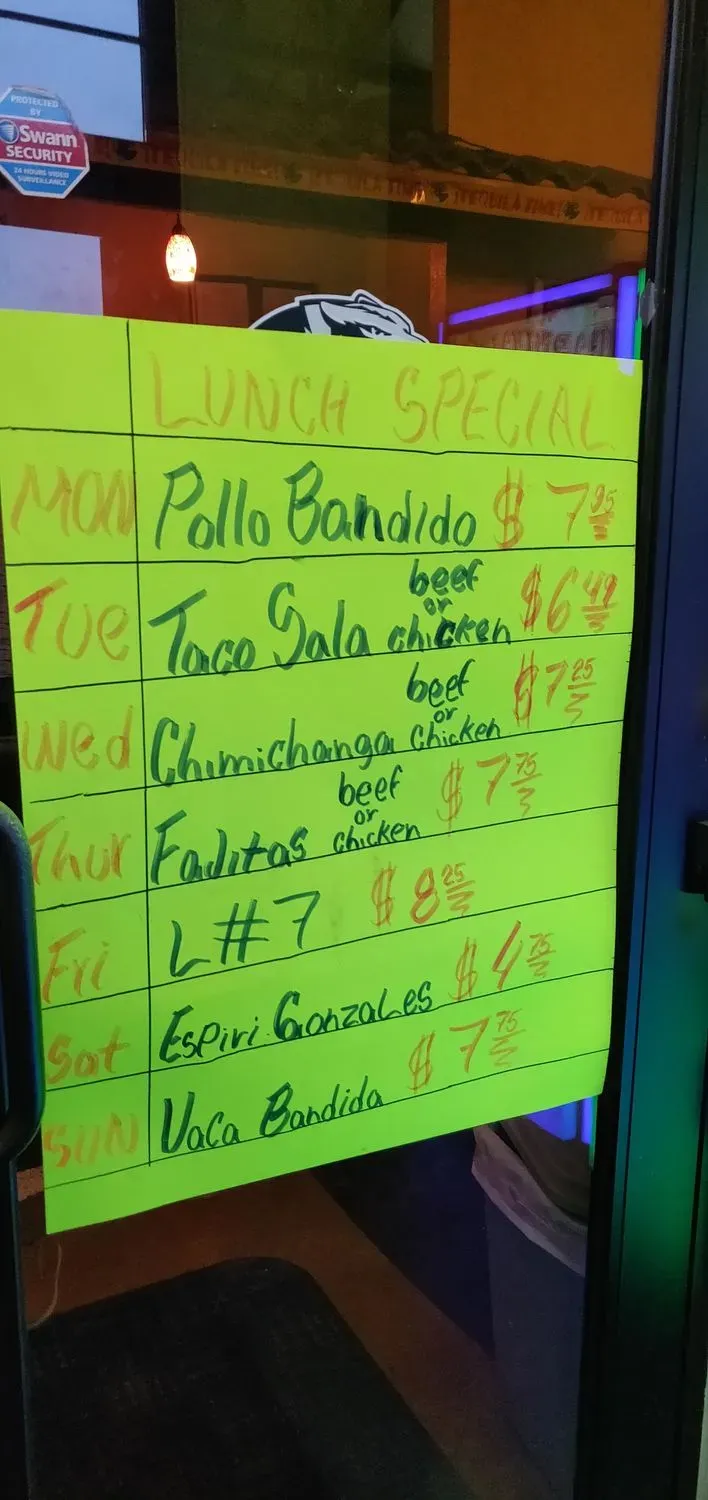 PROTECTED
BY
Swann
SECURITY
24 HOURS VIDEO
SURVEILLANCE
TEQUILA TIME!
LUNCH SPECIAL
MON Pollo Bandido $ 7 95
TUE Taco Sala beef or chicken $6 49
Wed Chimichanga beef or chicken $7 25
Thur Fajitas beef or chicken $ 7 75
Fri L#7 $ 8 25
Sat Espiri Gonzales $ 4 75
SUN Vaca Bandida $ 7 75